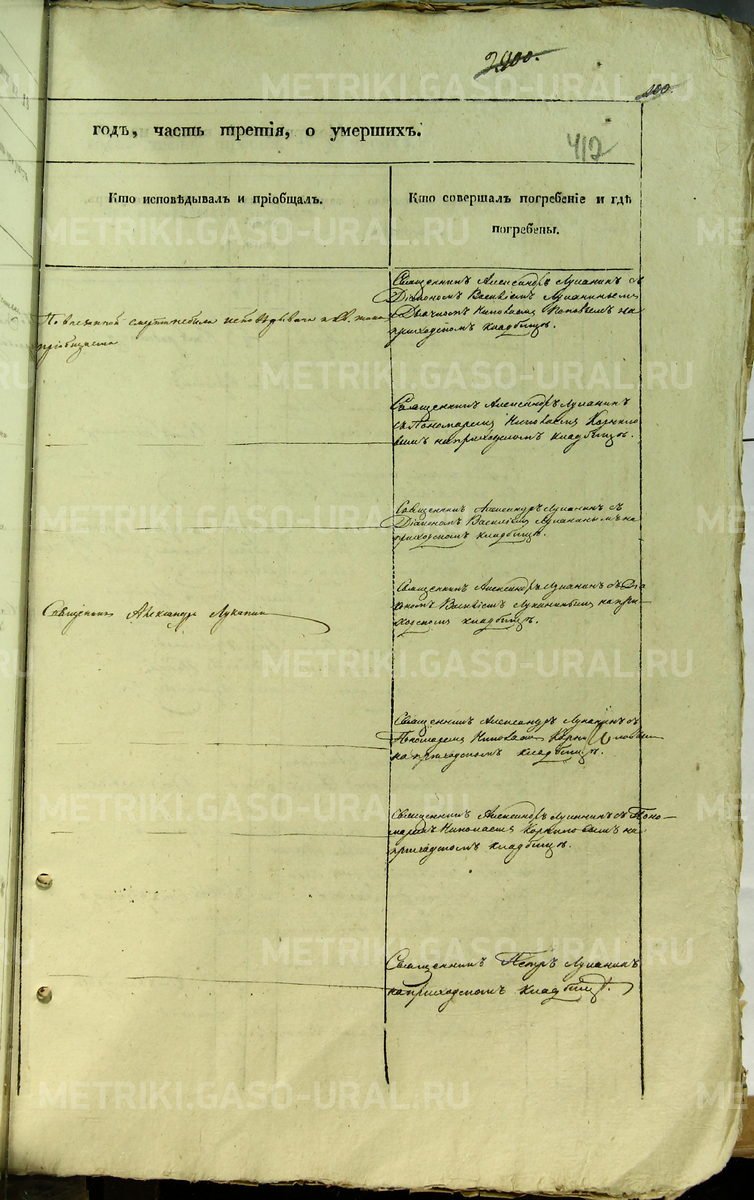 2900.
100.
годъ, часть третія, о умершихъ.
412
Кто исповѣдывалъ и пріобщалъ.
Кто совершалъ погребеніе и гдѣ
погребены.
По внезапной смерти небыла исповѣдывана и
пріобщена
Священникъ Александръ Луканинъ съ
Діакономъ Василіемъ Луканинымъ
и Дьячкомъ на
приходскомъ кладбищѣ.
Священникъ Александръ Луканинъ
съ Пономаремъ
на приходскомъ кладбищѣ.
Священникъ Александръ Луканинъ съ
Діакономъ Василіемъ Луканинымъ на
приходскомъ кладбищѣ.
Священникъ Александръ Луканинъ
Священникъ Александръ Луканинъ съ Діа
кономъ Василіемъ Луканинымъ на при-
ходскомъ кладбищѣ.
Священникъ Александръ Луканинъ съ
Пономаремъ
на приходскомъ кладбищѣ.
Священникъ Александръ Луканинъ съ Поно-
маремъ на
приходскомъ кладбищѣ.
Священникъ Петръ Луканинъ
на приходскомъ кладбищѣ.
METRIKI.GASO-URAL.RU